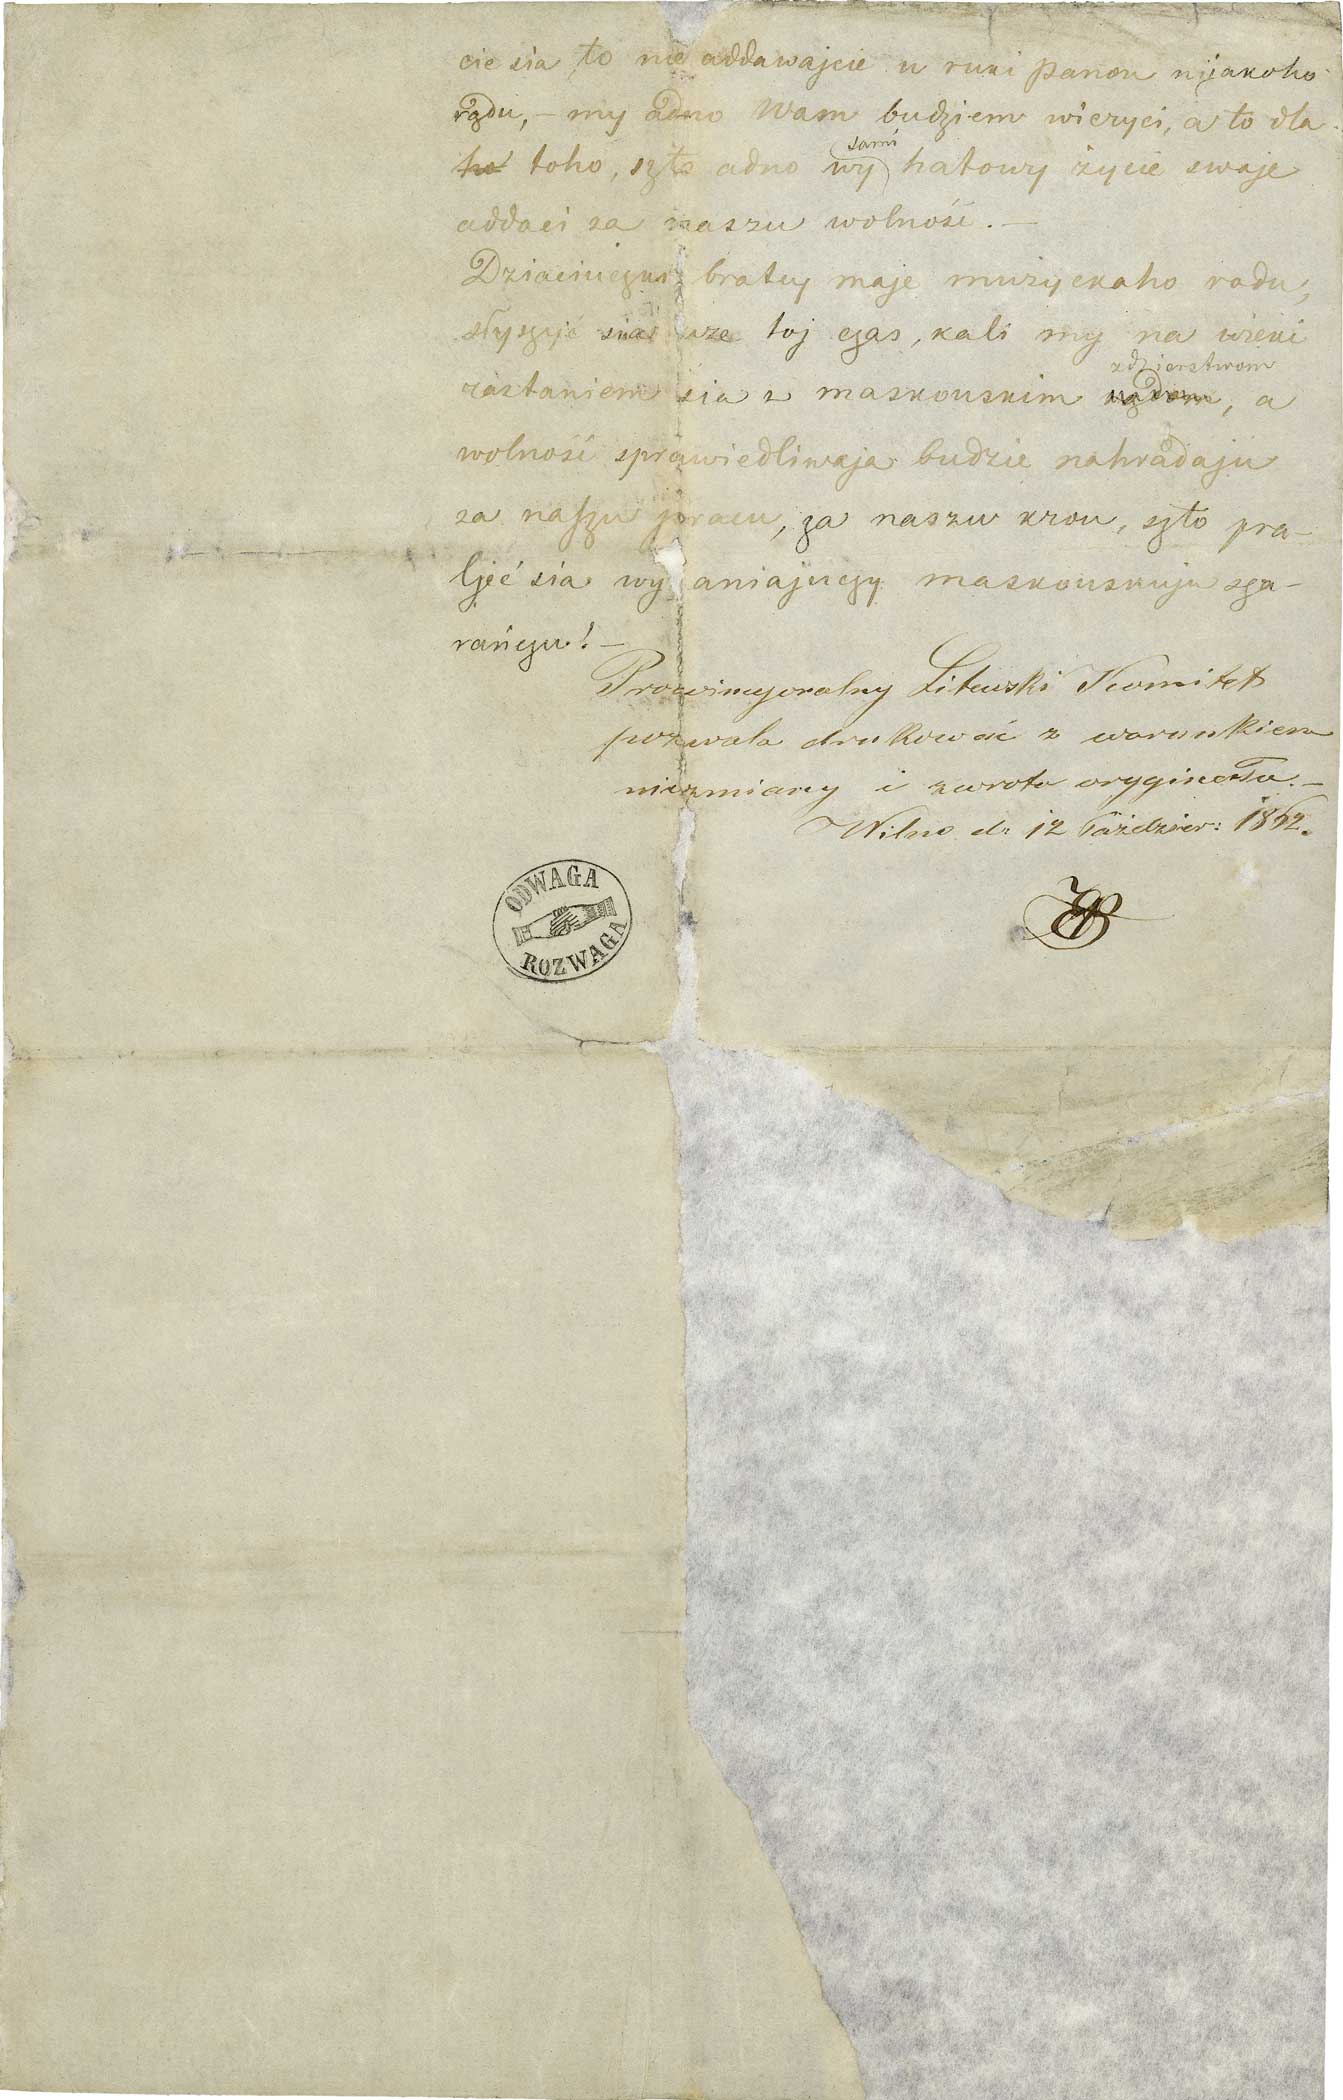 cie sia, to nie addawajcie u ruki panou nijakoho
rządu, — my adno Wam budziem wieryci, a to dla
ho toho, szto adno wy sami hatowy życie swaje
addaci za naszu wolność. —
Dziaciuczki bratcy maje mużyckaho rodu,
uze toj czas, kali my na wieki
rastaniem sia z maskouskim rządom zdzierstwom, a
wolność sprawiedliwaja budzie nahradaju
za naszu pracu, za naszu krou, szto pra-
ljeć sia wy aniajuczy maskouskuju sza-
rańczu! —
Prowincyonalny Litewski Komitet
pozwala drukować z warunkiem
niezmiany i zwrotu oryginału. —
Wilno d: 12 Paździer: 1862.
ODWAGA
ROZWAGA